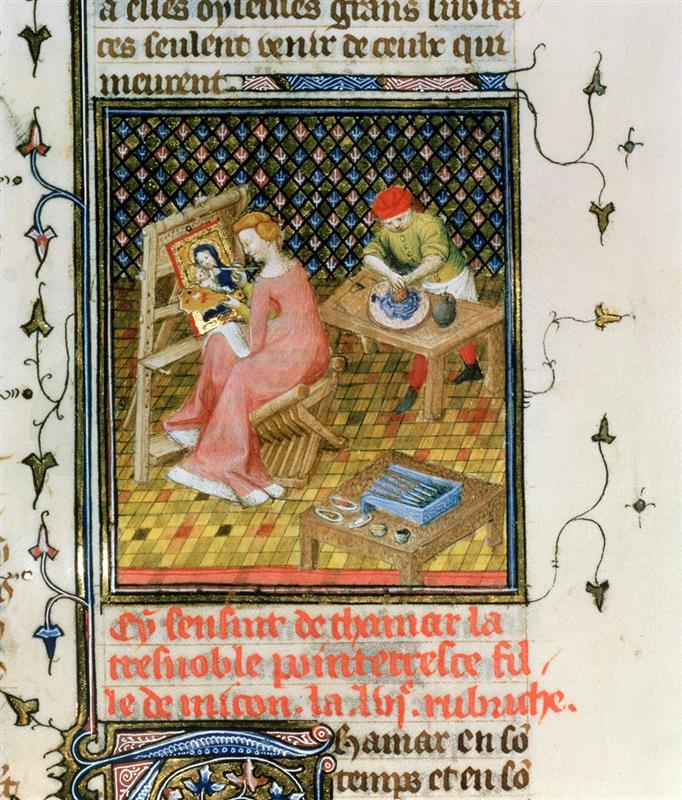 a elles oyseuses grans lubita
ces seulent venir de ceulx qui
meurent
Cy sensuit de thamar la
tresnoble pointerresce fil
le de micon. la .lvi͛. rubriche.
Thamar en so
temps et en so